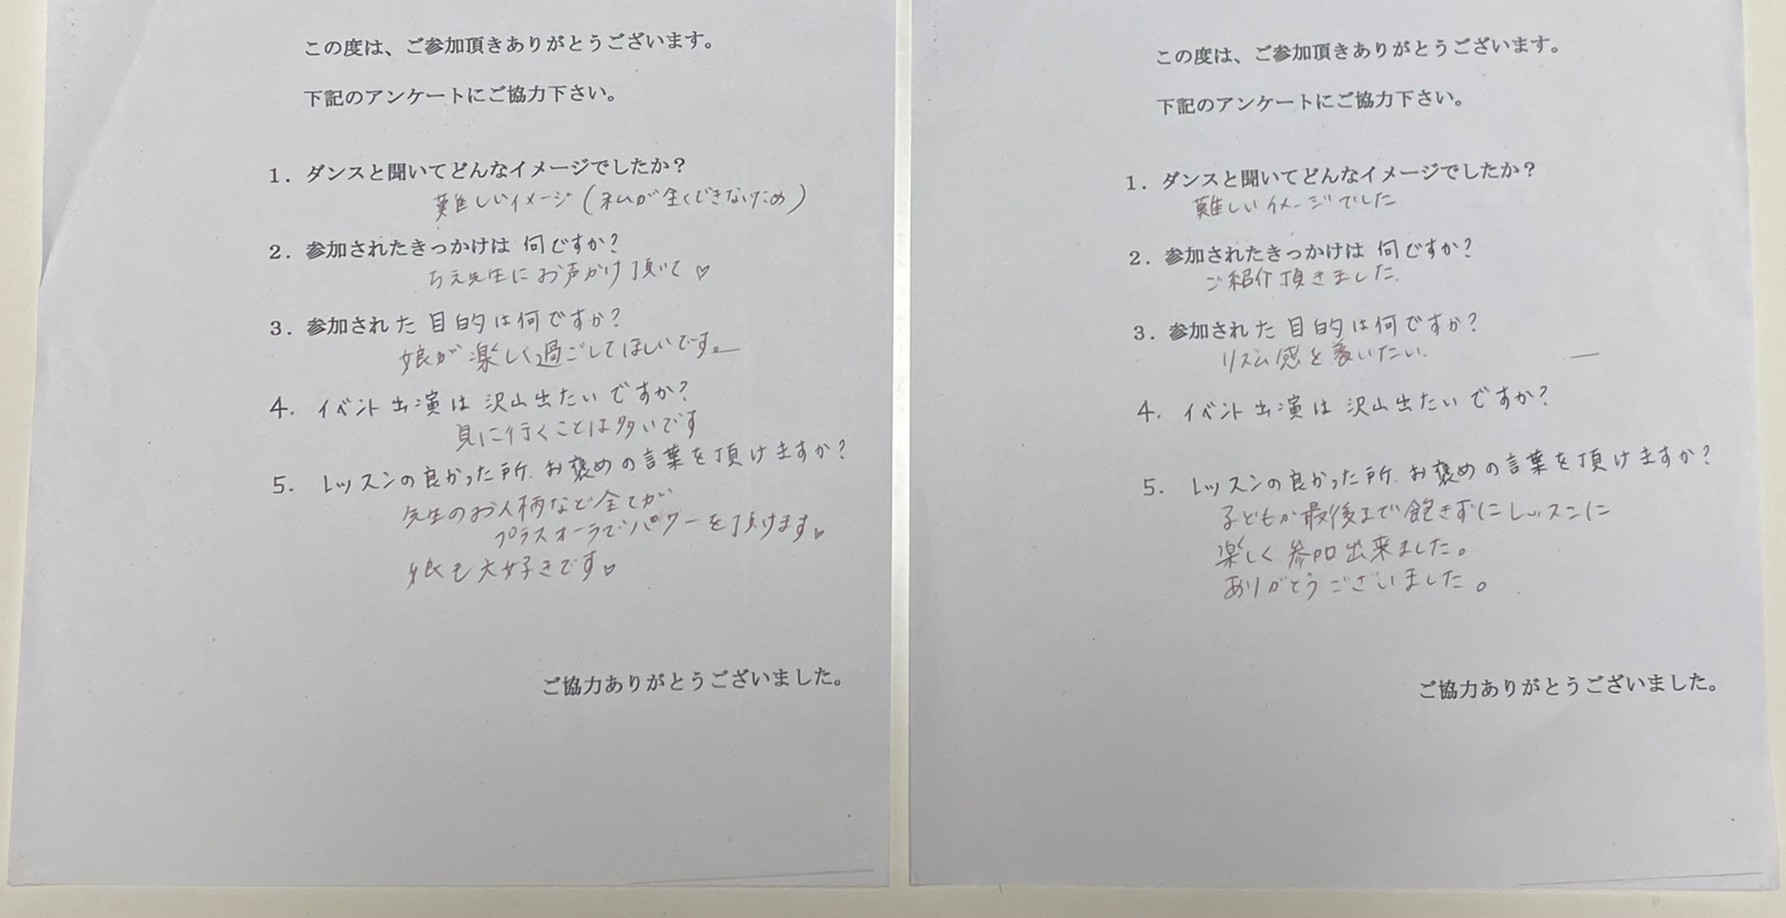 この度は、ご参加頂きありがとうございます。
下記のアンケートにご協力下さい。
1. ダンスと聞いてどんなイメージでしたか？
難しいイメージ(私が全くできないため)
2. 参加されたきっかけは 何ですか？
ちえ先生にお声かけ頂いて♡
3. 参加された 目的は何ですか？
娘が楽しく過ごしてほしいです。
4. イベント出演は 沢山出たいですか？
見に行くことは多いです
5. レッスンの良かった所、お褒めの言葉を頂けますか？
先生のお人柄など全てが
プラスオーラでパワーを頂けます♡
娘も大好きです♡
ご協力ありがとうございました。
この度は、ご参加頂きありがとうございます。
下記のアンケートにご協力下さい。
1. ダンスと聞いてどんなイメージでしたか？
難しいイメージでした
2. 参加されたきっかけは 何ですか？
ご紹介頂きました.
3. 参加された 目的は何ですか？
リズム感を養いたい.
4. イベント出演は 沢山出たいですか？
5. レッスンの良かった所、お褒めの言葉を頂けますか？
子どもが最後まで飽きずにレッスンに
楽しく参加出来ました。
ありがとうございました。
ご協力ありがとうございました。